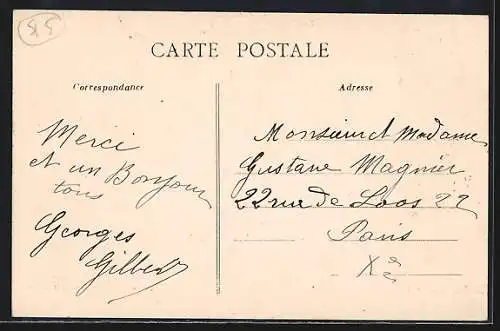 85
CARTE POSTALE
Correspondance
Merci
et un Bonjour
tous
Georges
Gilbert
Adresse
Monsieur et Madame
Gustave Magnier
22 rue de Loos 22
Paris
Xe